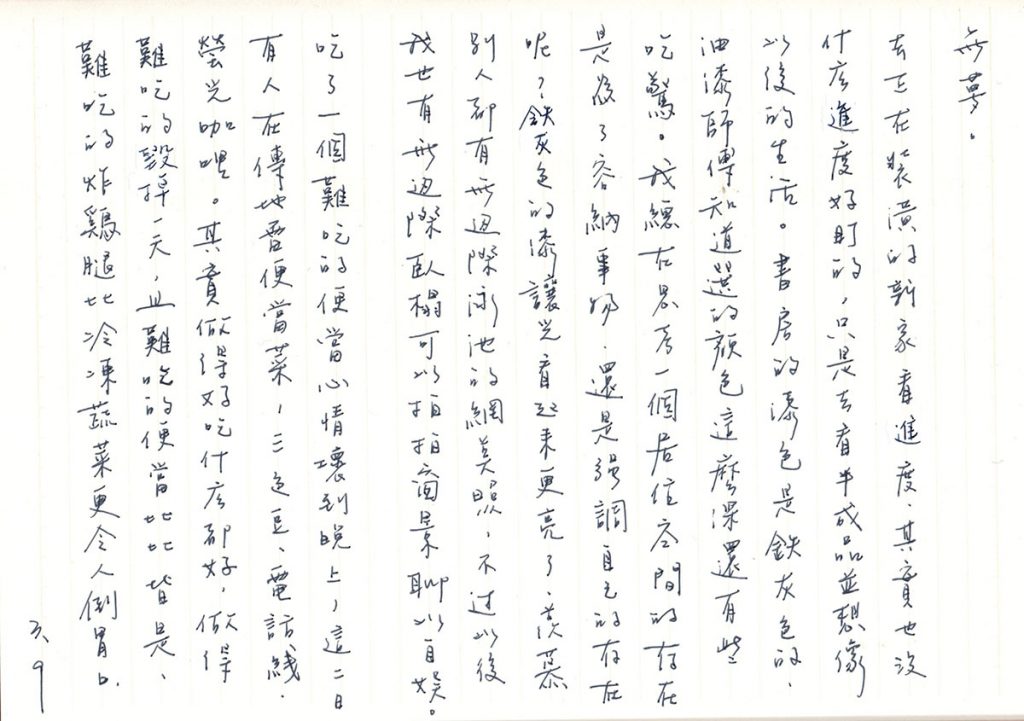 無夢。
去正在裝潢的新家看進度,其實也沒
什麼進度好盯的,只是去看半成品並想像
以後的生活。書房的漆色是鐵灰色的,
油漆師傅知道選的顏色這麼深還有些
吃驚。我總在思考一個居住空間的存在
是為了容納事物,還是強調自己的存在
呢,鐵灰色的漆讓光看起來更亮了,羨慕
別人都有無邊際泳池的網美照,不過以後
我也有無邊際臥榻可以拍拍窗景聊以自娛。
吃了一個難吃的便當心情壞到晚上,這二日
有人在傳地雷便當菜,三色豆、電話線、
螢光咖哩。其實做得好吃什麼都好,做得
難吃的毀掉一天,且難吃的便當比比皆是、
難吃的炸雞腿比冷凍蔬菜更令人倒胃口。
六、9